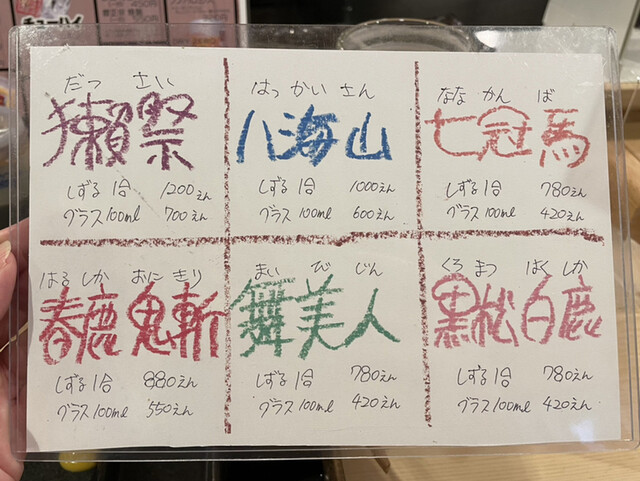 チューハイ
だっ さい
獺祭
しずる1合 1200えん
グラス100ml 700えん
はっ かい さん
八海山
しずる1合 1000えん
グラス100ml 600えん
なな かん ば
七冠馬
しずる1合 780えん
グラス100ml 420えん
はる しか おに きり
春鹿鬼斬
しずる1合 880えん
グラス100ml 550えん
まい び じん
舞美人
しずる1合 780えん
グラス100ml 420えん
くろ まつ はく しか
黒松白鹿
しずる1合 780えん
グラス100ml 420えん